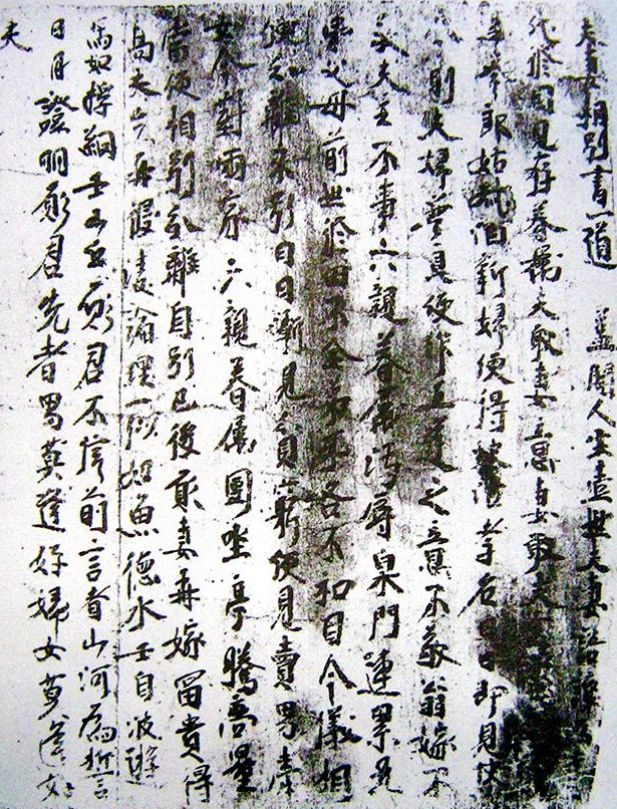 夫妻相別書一道 蓋聞人生壹世夫妻語
代於因見存眷屬夫取妻意女取夫
事奉郎姑叔伯新婦便得孝名日即見快
則夫婦無良便作五逆之意不敬翁嫁不
夫主不事六親眷屬污辱臬門連累兄
弟父母前世於因不全各不和目今議相
便分離不別日日漸見貧窮便見賣男牽
女今對兩家六親眷屬團坐亭騰商量
當便相別分離自別已後願妻再嫁富貴得
高夫再論理一似如魚德水壬自波遊
馬如捋綱壬山丘願君不信前言者山河為誓
日月證明願君先者男莫逢好婦女莫逢好
夫